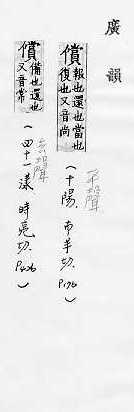 廣韻
償報也還也當也
復也又音尚
(十陽. 市羊切. P176)
平聲
償備也還也
又音常
(四十一漾 時亮切. P426)
去聲